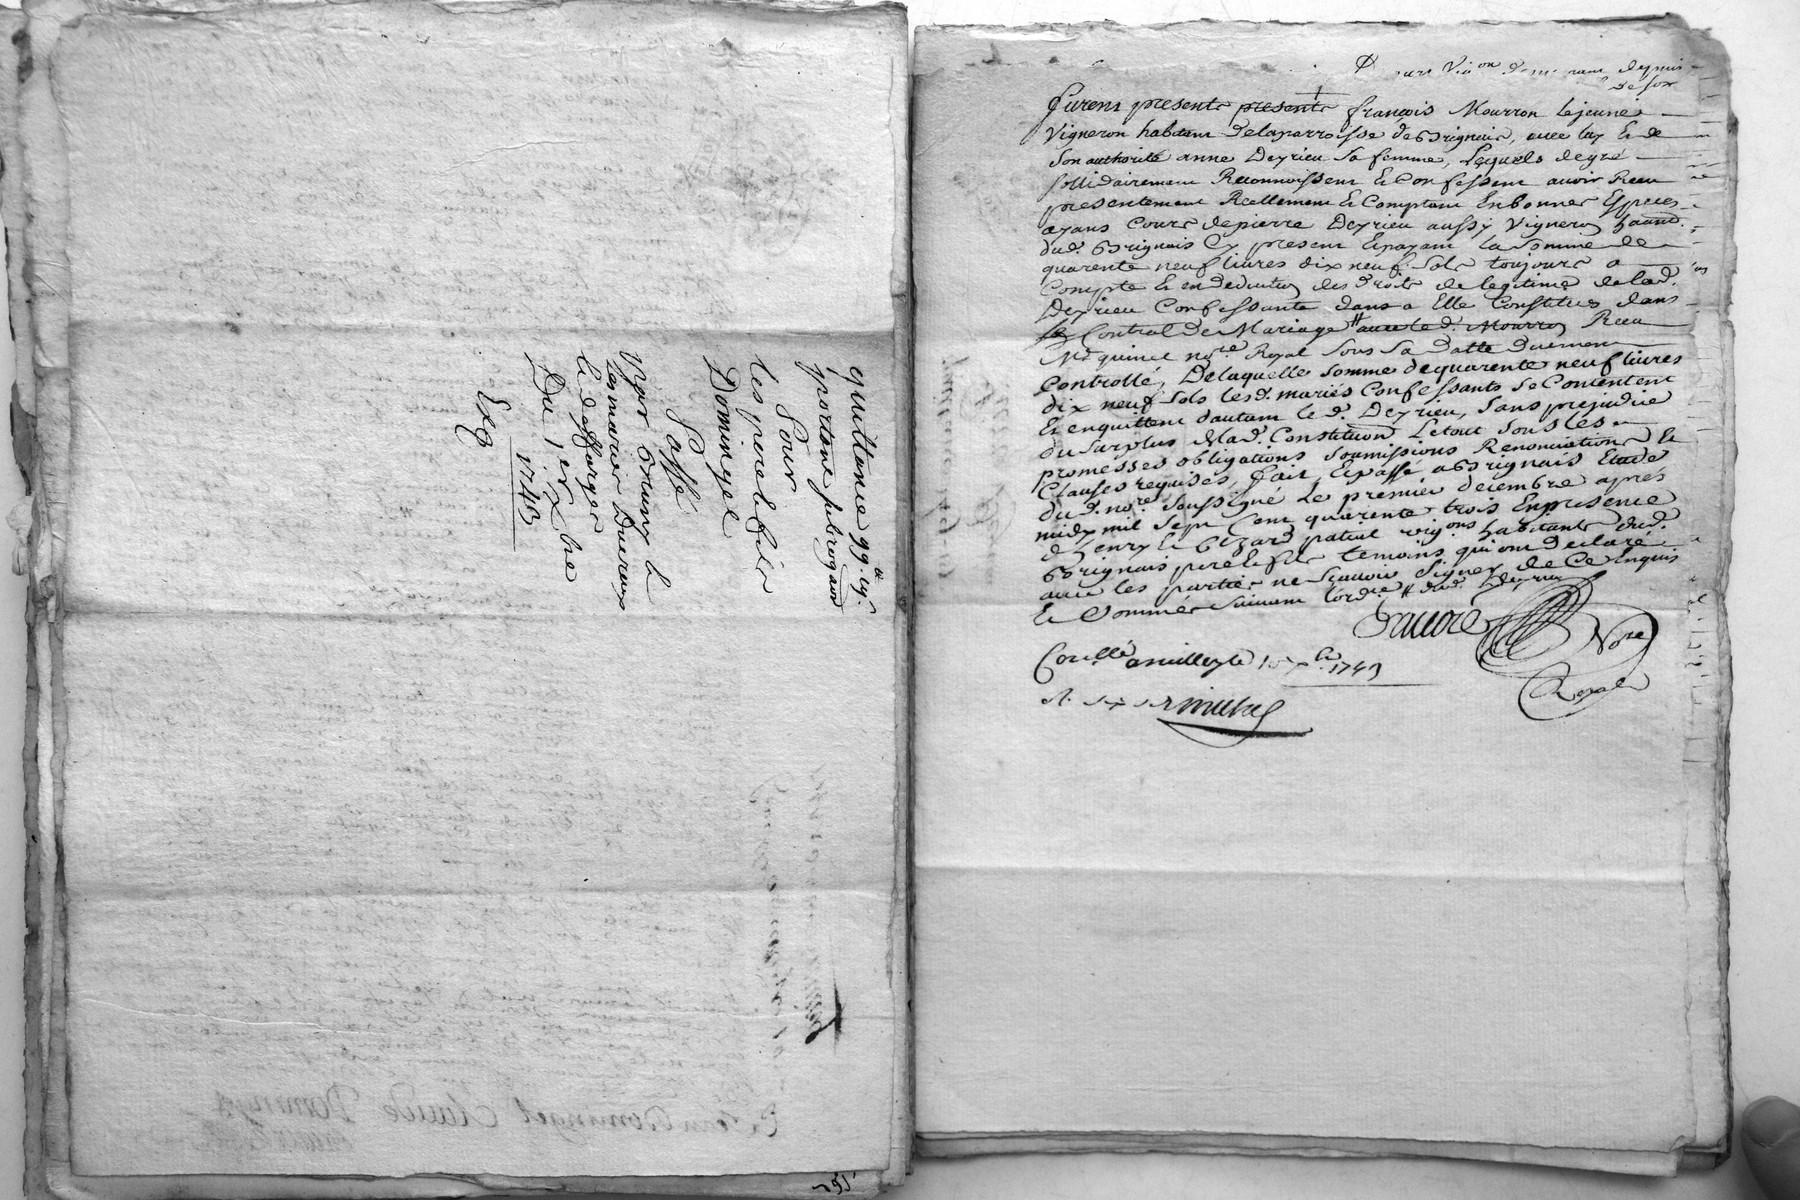 quittance 99.lt 19s.
portant subrogaon
Pour
les pere et fils
Domingel
Passé
par bruny &
les mariés Duereux
& desfarges
Du 1er xbre
1743
Exp
depuis
Furent presents presents françois Mourron lejeune
Vigneron habitant delaparroisse de Brignais, avec luy Et de
Son authorité anne Deyrieu Sa femme, Lesquels degré
Sollidairement Reconnoissent Et Confessent auoir Receu
presentement Reellement Et Comptant Enbonnes Especes
ayans Cours depierre Deyrieu aussy Vigneron haant.
dud. Brignais Cy present Etpayant la Somme de
quarente neuf liures dix neuf Sols toujours a
Compte Et en deduction des droits de legitime delad.
Deyrieu Confessante dans a Elle Constitués dans
Contrat de Mariage # auec led. Mourron Receu
Me quinet nore Royal Sous Sa datte duement
Controllé, Delaquelle Somme dequarente neuf liures
dix neuf Sols lesd. mariés Confessants Se Contentent
Et enquittent dautant le d. Deyrieu, Sans prejudice
du Surplus delad. Constituon Letout Sous les
promesses obligations Soumissions Renonciations Et
Clauses requises, fait Et passé a Brignais Etude
dud. nore Soussigné Le premier decembre aprés
midy mil Sept Cent quarente trois Enpresence
d'henry Et patial vigons habitants dud.
Brignais pere et fils temoins qui ont declaré
auec les parties ne Scauoir Signer de Ce Enquis
Et Sommés Suiuant lordce # dud. Deyrieu
Nore
Royal
Conllé amillery le 10 xbre 1743
R. six s